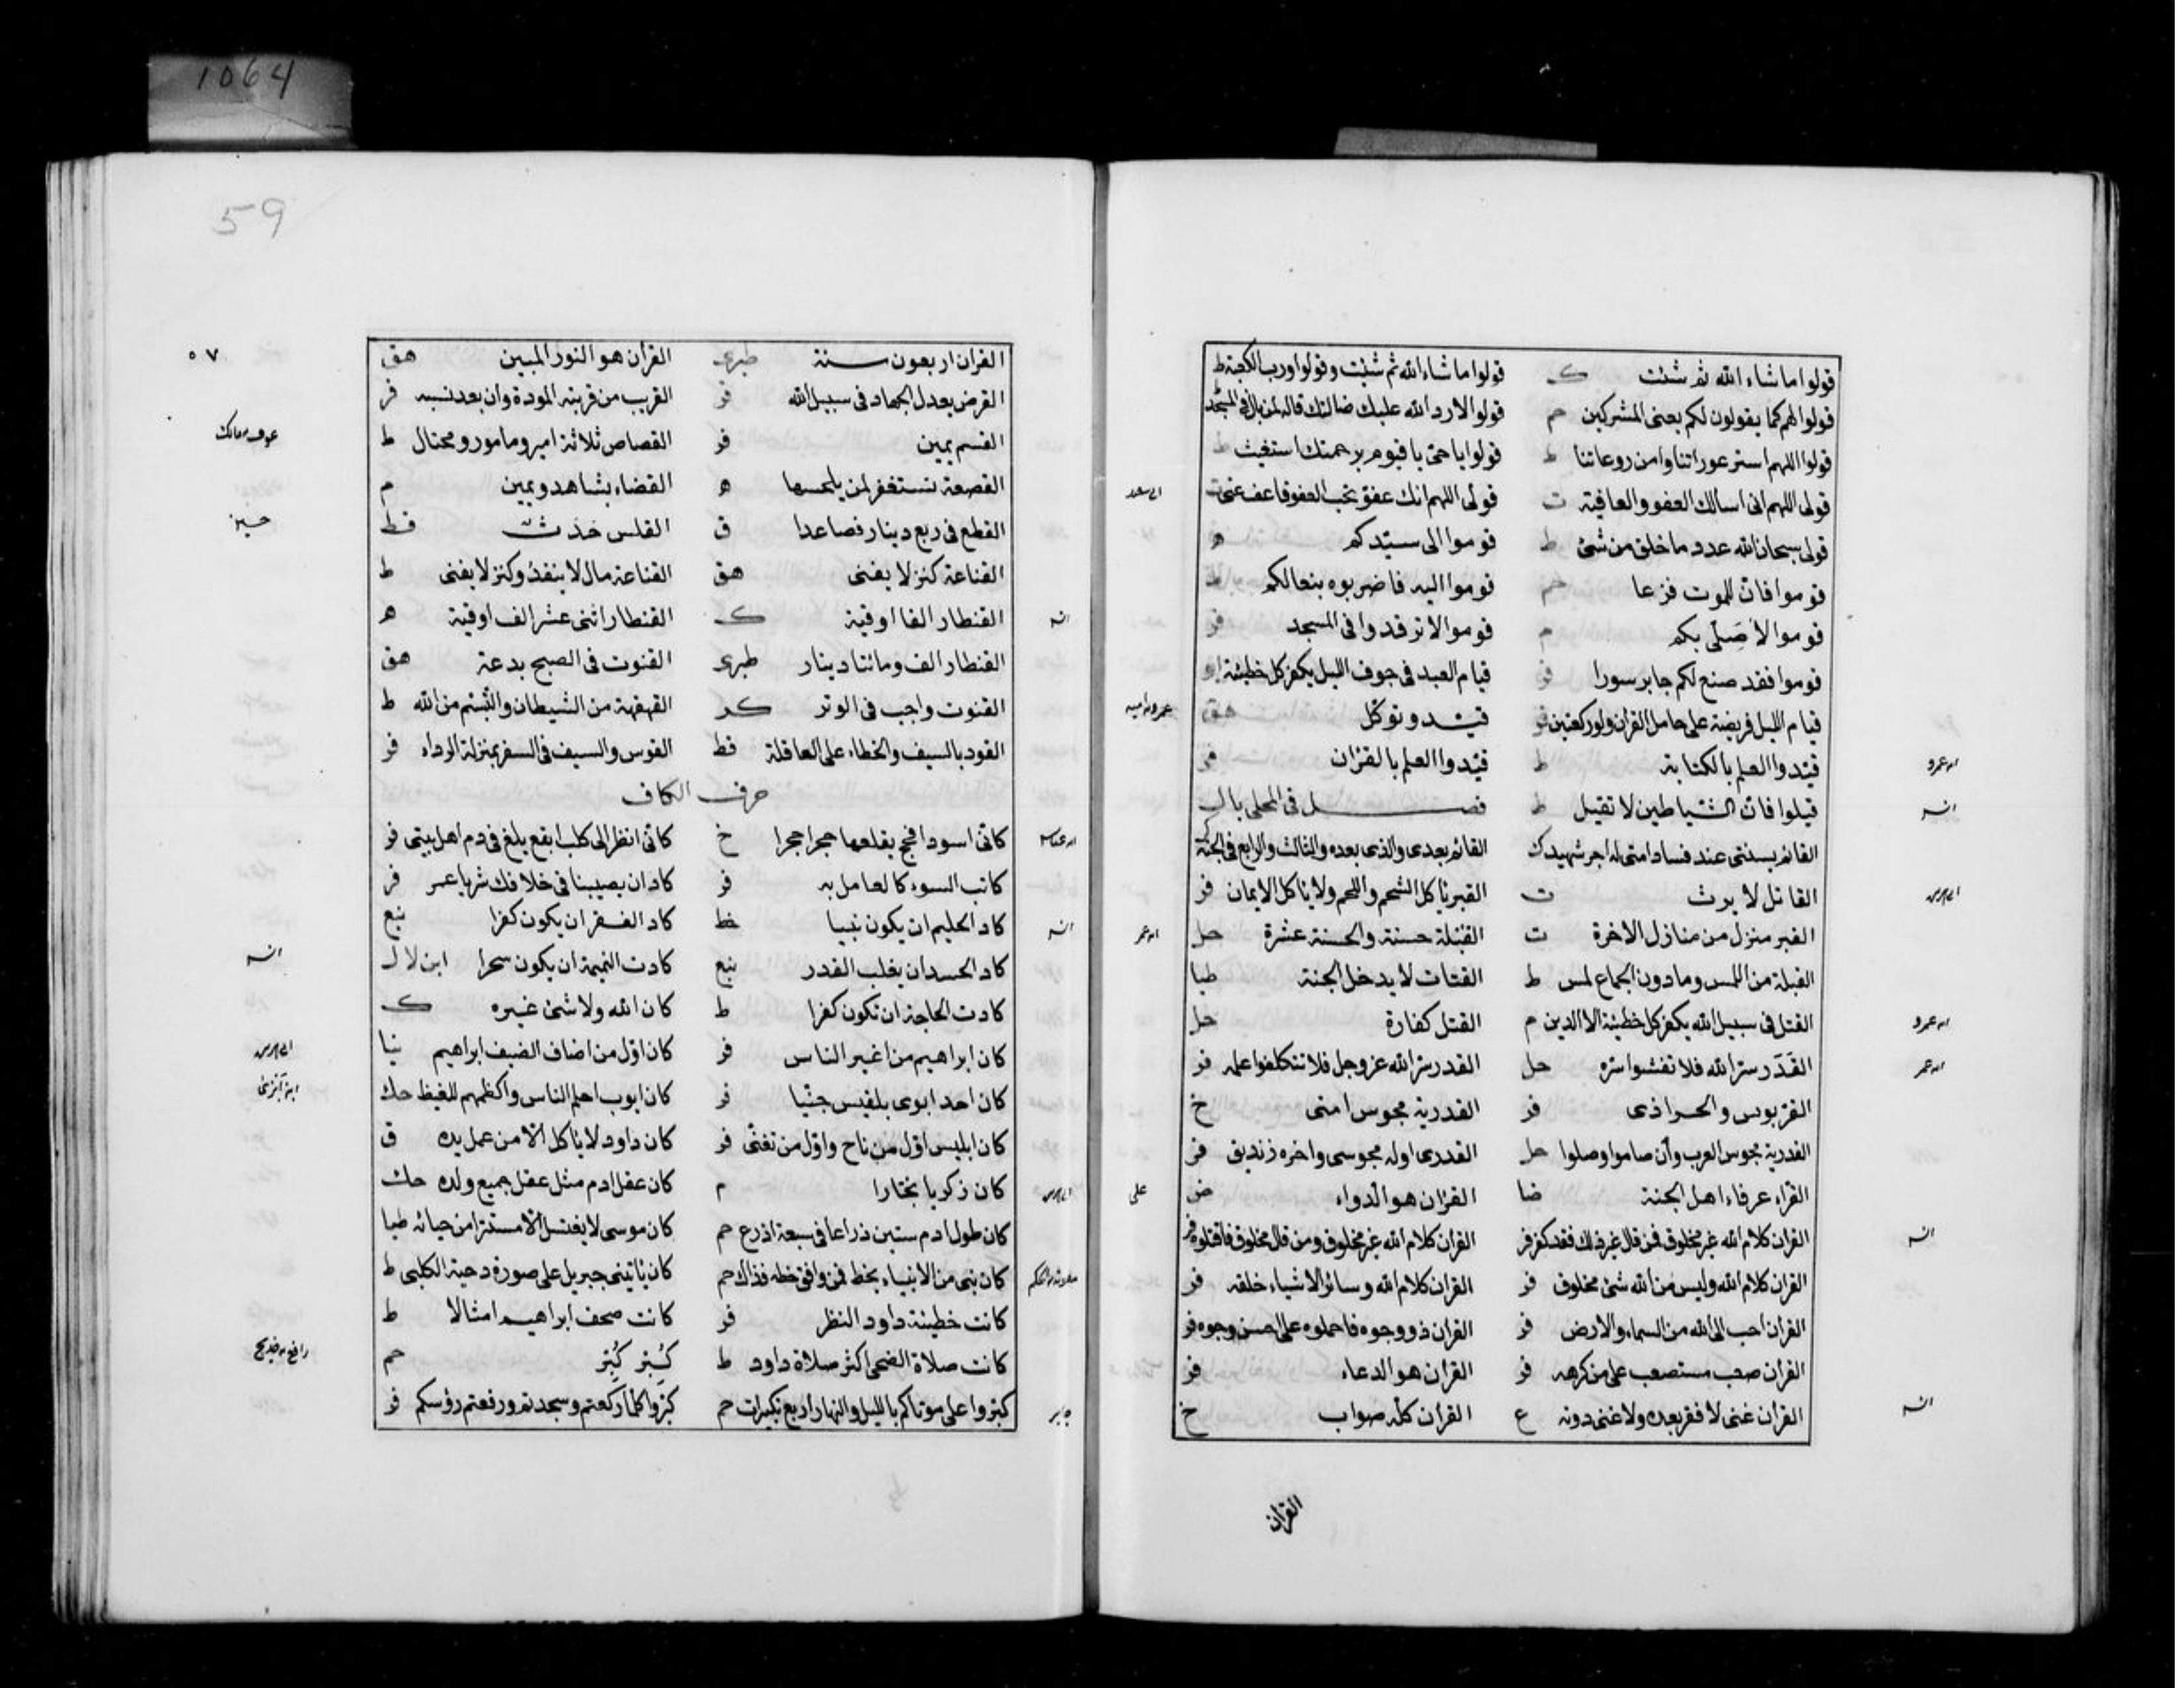 1064
قولوا ما شاء الله ثم شئت ك قولوا ما شاء الله ثم شئت وقولوا ورب الكعبة ط
قولوا لهم كما يقولون لكم يعنى المشركين حم قولوا لا رد الله عليك ضالتك قاله لمن
قولوا اللهم استر عوراتنا وامن روعاتنا ط قولوا يا حى يا قيوم برحمتك استغيث ط
قولى اللهم انى اسالك العفو والعافية ت قولى اللهم انك عفو تحب العفو فاعف عنى ت
قولى سبحان الله عدد ما خلق من شئ ط قوموا الى سيدكم ه
قوموا فان للموت فزعا حم قوموا اليه فاضربوه بنعالكم ط
قوموا لاصلى بكم م قوموا لا ترقدوا فى المسجد فر
قوموا فقد صنع لكم جابر سورا فر قيام العبد فى جوف الليل يكفر كل خطيئة
قيام الليل فريضة على حامل القران ولو ركعتين فر قيد وتوكل هق عمرو امية
قيدوا العلم بالكتابة ط قيدوا العلم بالقران فر
قيلوا فان الشياطين لا تقيل ط فصل فى المحلى بال
القائم بسنتى عند فساد امتى له اجر شهيد ك القائم بعدى والذى بعده والثالث والرابع فى الجنة
القاتل لا يرث ت القبر ياكل الشحم واللحم ولا ياكل الايمان فر
القبر منزل من منازل الاخرة ت القبلة حسنة والحسنة عشرة حل
القبلة من اللمس وما دون الجماع لمس ط القتات لا يدخل الجنة طيا
القتل فى سبيل الله يكفر كل خطيئة الا الدين م القتل كفارة حل
القدر سر الله فلا تفشوا سره حل القدر سر الله عز وجل فلا تتكلفوا علمه فر
القدرية مجوس امتى خ
القدرية مجوس العرب وان صاموا وصلوا حل القدرى اوله مجوسى واخره زنديق فر
القراء عرفاء اهل الجنة ضا القران هو الدواء ض على
القران كلام الله غير مخلوق فمن قال غير ذلك فقد كفر فر القران كلام الله غير مخلوق ومن قال مخلوق فاقتلوه فر
القران كلام الله وليس من الله شئ مخلوق فر القران كلام الله وسائر الاشياء خلقه فر
القران احب الى الله من السماء والارض فر القران ذو وجوه فاحملوه على احسن وجوه فر
القران صعب مستصعب على من كرهه فر القران هو الدعاء فر
القران غنى لا فقر بعده ولا غنى دونه ع القران كله صواب خ
القران
59
٥٧
القران اربعون سنة طبرى القران هو النور المبين هق
القرض يعدل الجهاد فى سبيل الله فر القريب من قربته المودة وان بعد نسبه فر
القسم يمين فر القصاص ثلاثة امير ومامور ومحتال ط
القصعة تستغفر لمن يلحسها ه القضاء بشاهد ويمين م
القطع فى ربع دينار فصاعدا ق القلس حدث قط
القناعة كنز لا يفنى هق القناعة مال لا ينفد وكنز لا يفنى ط
القنطار الفا اوقية ك القنطار اثنى عشر الف اوقية ه
القنطار الف ومائتا دينار طبرى القنوت فى الصبح بدعة هق
القنوت واجب فى الوتر كر القهقهة من الشيطان والتبسم من الله ط
القود بالسيف والخطاء على العاقلة قط القوس والسيف فى السفر بمنزلة الرداء فر
حرف الكاف
كانى اسود افحج يقلعها حجرا حجرا خ كانى انظر الى كلب ابقع يلغ فى دم اهل بيتى فر
كاتب السوء كالعامل به فر كاد ان يصيبنا فى خلافك شر يا عمر فر
كاد الحليم ان يكون نبيا خط كاد الفقر ان يكون كفرا نبع
كاد الحسد ان يغلب القدر نبع كادت النميمة ان يكون سحرا ابن لال
كادت الحاجة ان تكون كفرا ط كان الله ولا شئ غيره ك
كان ابراهيم من اغير الناس فر كان اول من اضاف الضيف ابراهيم نيا
كان احد ابوى بلقيس جنيا فر كان ايوب احلم الناس واكظمهم للغيظ حك
كان ابليس اول من ناح واول من تغنى فر كان داود لا ياكل الا من عمل يده ق
كان زكريا نجارا م كان عقل ادم مثل عقل جميع ولده حك
كان طول ادم ستين ذراعا فى سبعة اذرع حم كان موسى لا يغتسل الا مستترا من حيائه طيا
كان نبى من الانبياء يخط فمن وافق خطه فذاك حم كان ياتينى جبريل على صورة دحية الكلبى ط
كانت خطيئة داود النظر فر كانت صحف ابراهيم امثالا ط
كانت صلاة الضحى اكثر صلاة داود ط كبر كبر حم رافع خديج
كبروا على موتاكم بالليل والنهار اربع تكبيرات حم كبروا كلما ركعتم وسجدتم ورفعتم رؤسكم فر